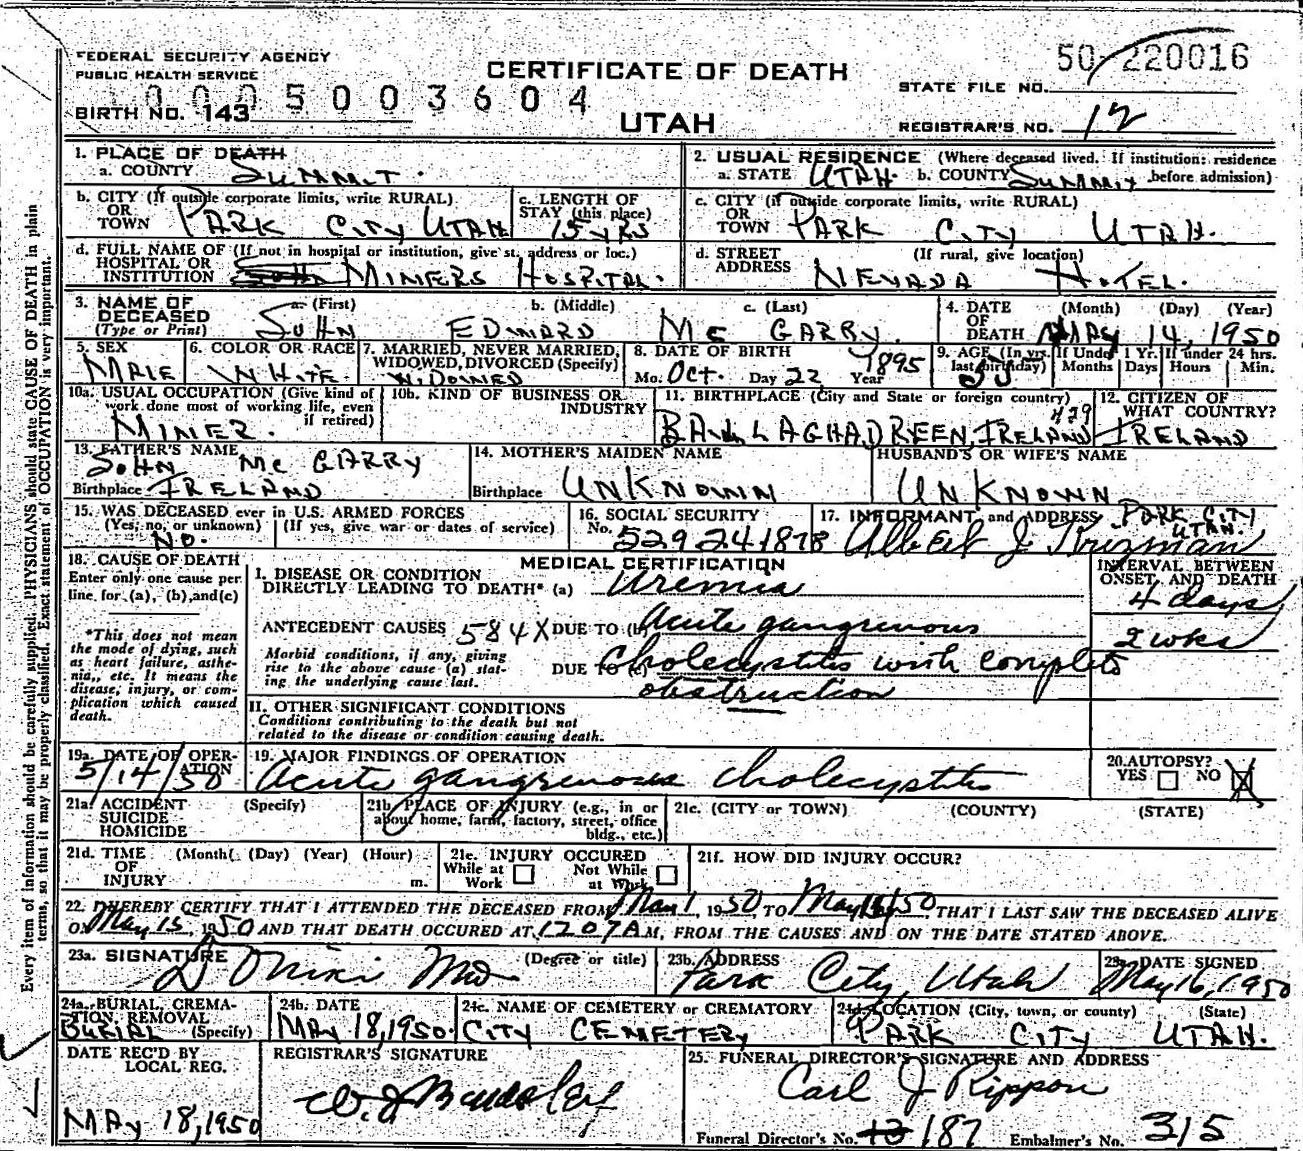 FEDERAL SECURITY AGENCY
PUBLIC HEALTH SERVICE
0005003604
BIRTH NO. 143
CERTIFICATE OF DEATH
UTAH
50-220016
STATE FILE NO.
REGISTRAR'S NO. 12
Every item of information should be carefully supplied. PHYSICIANS should state CAUSE OF DEATH in plain
terms, so that it may be properly classified. Exact statement of OCCUPATION is very important.
1. PLACE OF DEATH
a. COUNTY SUMMIT.
2. USUAL RESIDENCE (Where deceased lived. If institution: residence
a. STATE UTAH. b. COUNTY SUMMIT before admission)
b. CITY (If outside corporate limits, write RURAL)
OR
TOWN PARK CITY UTAH
c. LENGTH OF
STAY (this place)
15 YRS
c. CITY (if outside corporate limits, write RURAL)
OR
TOWN PARK CITY UTAH.
d. FULL NAME OF (If not in hospital or institution, give st. address or loc.)
HOSPITAL OR
INSTITUTION MINERS HOSPITAL.
d. STREET (If rural, give location)
ADDRESS NEVADA HOTEL.
3. NAME OF
DECEASED
(Type or Print)
a. (First) b. (Middle) c. (Last)
JOHN EDWARD MC GARRY.
4. DATE (Month) (Day) (Year)
OF
DEATH MAY 14, 1950
5. SEX
MALE
6. COLOR OR RACE
WHITE.
7. MARRIED, NEVER MARRIED,
WIDOWED, DIVORCED (Specify)
WIDOWED
8. DATE OF BIRTH 1895
Mo. Oct. Day 22 Year
9. AGE (In yrs.
last birthday)
If Under 1 Yr.
Months Days
If under 24 hrs.
Hours Min.
10a. USUAL OCCUPATION (Give kind of
work done most of working life, even
if retired)
MINER.
10b. KIND OF BUSINESS OR
INDUSTRY
11. BIRTHPLACE (City and State or foreign country)
BALLAGHADREEN, IRELAND
12. CITIZEN OF
WHAT COUNTRY?
IRELAND
13. FATHER'S NAME
JOHN MC GARRY
Birthplace IRELAND
14. MOTHER'S MAIDEN NAME
Birthplace UNKNOWN
HUSBAND'S OR WIFE'S NAME
UNKNOWN
15. WAS DECEASED ever in U.S. ARMED FORCES
(Yes, no, or unknown) (If yes, give war or dates of service)
NO.
16. SOCIAL SECURITY
No. 529 24 1878
17. INFORMANT and ADDRESS PARK CITY
UTAH.
Albert J
18. CAUSE OF DEATH
Enter only one cause per
line for (a), (b), and (c)
*This does not mean
the mode of dying, such
as heart failure, asthe-
nia,, etc. It means the
disease, injury, or com-
plication which caused
death.
MEDICAL CERTIFICATION
I. DISEASE OR CONDITION
DIRECTLY LEADING TO DEATH* (a) Uremia
INTERVAL BETWEEN
ONSET AND DEATH
4 days
ANTECEDENT CAUSES 584X DUE TO (b) Acute gangrenous
2 wks
Morbid conditions, if any, giving
rise to the above cause (a) stat-
ing the underlying cause last.
DUE TO (c) Cholecystitis with complete
obstruction
II. OTHER SIGNIFICANT CONDITIONS
Conditions contributing to the death but not
related to the disease or condition causing death.
19a. DATE OF OPER-
ATION
5/14/50
19. MAJOR FINDINGS OF OPERATION
Acute gangrenous cholecystitis
20. AUTOPSY?
YES NO X
21a. ACCIDENT (Specify)
SUICIDE
HOMICIDE
21b. PLACE OF INJURY (e.g., in or
about home, farm, factory, street, office
bldg., etc.)
21c. (CITY or TOWN) (COUNTY) (STATE)
21d. TIME (Month) (Day) (Year) (Hour)
OF
INJURY m.
21e. INJURY OCCURED
While at Work Not While at Work
21f. HOW DID INJURY OCCUR?
22. I HEREBY CERTIFY THAT I ATTENDED THE DECEASED FROM May 1, 1950 TO May 50 THAT I LAST SAW THE DECEASED ALIVE
ON May 15, 1950 AND THAT DEATH OCCURED AT 1207 AM, FROM THE CAUSES AND ON THE DATE STATED ABOVE.
23a. SIGNATURE (Degree or title)
MD
23b. ADDRESS
Park City, Utah
23c. DATE SIGNED
May 16, 1950
24a. BURIAL, CREMA-
TION, REMOVAL
BURIAL (Specify)
24b. DATE
MAY 18, 1950.
24c. NAME OF CEMETERY or CREMATORY
CITY CEMETERY
24d. LOCATION (City, town, or county) (State)
PARK CITY UTAH.
DATE REC'D BY
LOCAL REG.
MAY 18, 1950
REGISTRAR'S SIGNATURE
25. FUNERAL DIRECTOR'S SIGNATURE AND ADDRESS
Carl J Rippon
Funeral Director's No. 13 187 Embalmer's No. 315